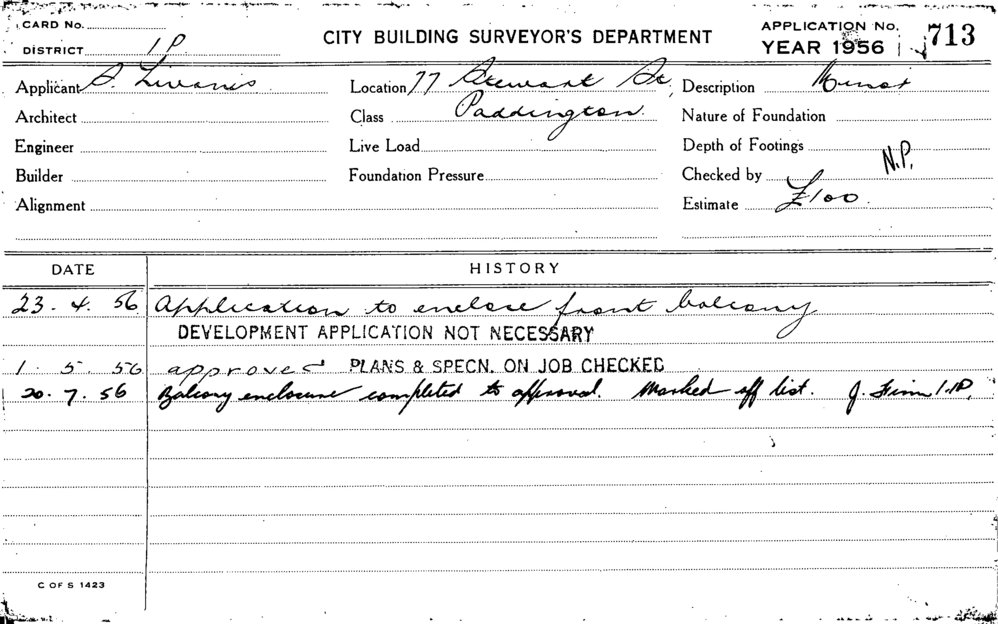 CARD No.
DISTRICT 1P
CITY BUILDING SURVEYOR'S DEPARTMENT
APPLICATION No. 713
YEAR 1956
Applicant Livanis
Location 77 Stewart St,
Description Minor
Architect
Class Paddington.
Nature of Foundation
Engineer
Live Load
Depth of Footings
Builder
Foundation Pressure
Checked by N.P.
Alignment
Estimate £100
DATE HISTORY
23. 4. 56 Application to enclose front balcony
DEVELOPMENT APPLICATION NOT NECESSARY
1. 5. 56 approved PLANS & SPECN. ON JOB CHECKED
20. 7. 56 Balcony enclosure completed to approval. Marked off list. J. Finn 1.P.
C OF S 1423